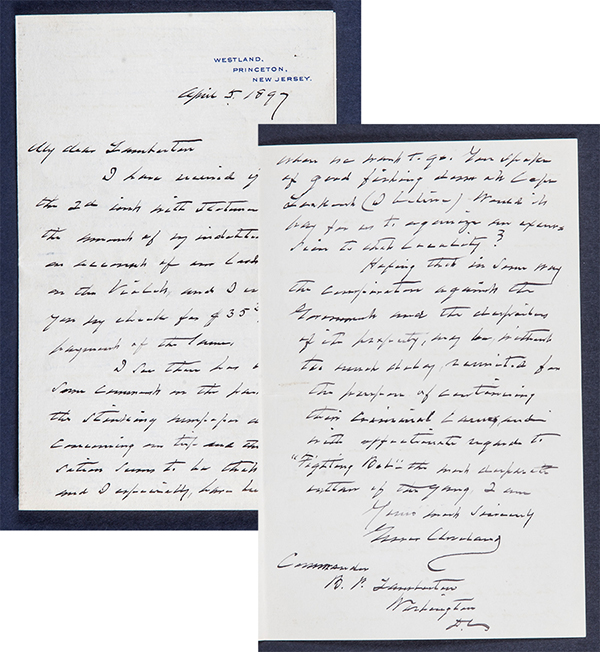 WESTLAND,
PRINCETON,
NEW JERSEY.
April 5, 1897
My dear Lamberton
I have received y
the 2d inst with statem
the amount of my indebted
on account of our
on the Violet, and I
you my check for $35
payment of the same.
I see there has
some comment on the
the stinking newspaper
concerning our trip and the
sation seems to be that
and I especially, have
when we want to go. You spoke
of good fishing down at Cape
Lookout (I believe). Would it
pay for us to organize an excur-
sion to that locality?
Hoping that in some way
the conspiration against the
Government and the despoilers
of its property, may be without
too much delay reunited for
the purpose of continuing
their criminal career, and
with affectionate regards to
"Fighting Bob" the most desperate
of the gang, I am
Yours most sincerely
Grover Cleveland
Commander
B. P. Lamberton
Washington
D.C.